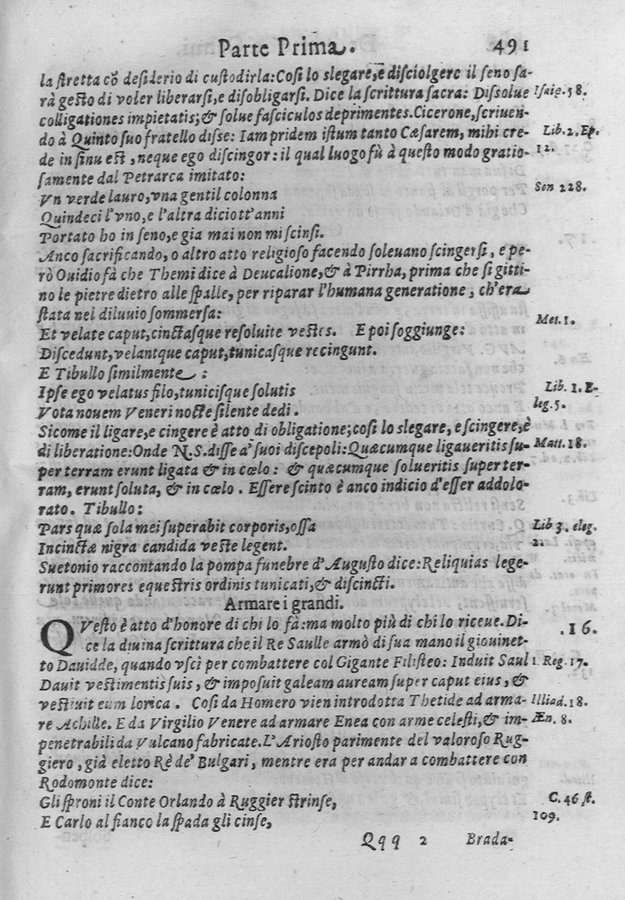 Parte Prima. 491
la stretta cõ desiderio di custodirla: Cosi lo slegare, e disciolgere il seno sa-
rà gesto di voler liberarsi, e disobligarsi. Dice la scrittura sacra: Dissolue Isaię. 58.
colligationes impietatis; & solue fasciculos deprimentes. Cicerone, scriuen-
do à Quinto suo fratello disse: Iam pridem istum tanto Cæsarem, mihi cre- Lib. 2, Ep.
de in sinu est, neque ego discingor: il qual luogo fù à questo modo gratio- 12.
samente dal Petrarca imitato: Son 228.
Vn verde lauro, vna gentil colonna
Quindeci l'vno, e l'altra diciott'anni
Portato ho in seno, e gia mai non mi scinsi.
Anco sacrificando, o altro atto religioso facendo soleuano scingersi, e pe-
rò Ouidio fà che Themi dice à Deucalione, & à Pirrha, prima che si gitti-
no le pietre dietro alle spalle, per riparar l'humana generatione, ch'era
stata nel diluuio sommersa: Met. 1.
Et velate caput, cinctasque resoluite vestes. E poi soggiunge:
Discedunt, velantque caput, tunicasque recingunt.
E Tibullo similmente:
Ipse ego velatus filo, tunicisque solutis Lib. 1. E-
Vota nouem Veneri nocte silente dedi. leg. 5.
Sicome il ligare, e cingere è atto di obligatione; cosi lo slegare, e scingere, è
di liberatione: Onde N. S. disse a' suoi discepoli: Quæcumque ligaueritis su- Matt. 18.
per terram erunt ligata & in cœlo: & quæcumque solueritis super ter-
ram, erunt soluta, & in cœlo. Essere scinto è anco indicio d'esser addolo-
rato. Tibullo:
Pars quæ sola mei superabit corporis, ossa Lib 3. eleg.
Incinctæ nigra candida veste legent. 2.
Suetonio raccontando la pompa funebre d'Augusto dice: Reliquias lege-
runt primores equestris ordinis tunicati, & discincti.
Armare i grandi.
QVesto è atto d'honore di chi lo fà: ma molto più di chi lo riceue. Di- .16.
ce la diuina scrittura che il Re Saulle armò di sua mano il giouinet-
to Dauidde, quando vscì per combattere col Gigante Filisteo: Induit Saul 1. Reg. 17.
Dauit vestimentis suis, & imposuit galeam auream super caput eius, &
vestiuit eum lorica. Cosi da Homero vien introdotta Thetide ad arma- Illiad. 18.
re Achille. E da Virgilio Venere ad armare Enea con arme celesti, & im- Æn. 8.
penetrabili da Vulcano fabricate. L'Ariosto parimente del valoroso Rug-
giero, già eletto Rè de' Bulgari, mentre era per andar a combattere con
Rodomonte dice:
Gli sproni il Conte Orlando à Ruggier strinse, C. 46 st.
E Carlo al fianco la spada gli cinse, 109.
Qqq 2 Brada-